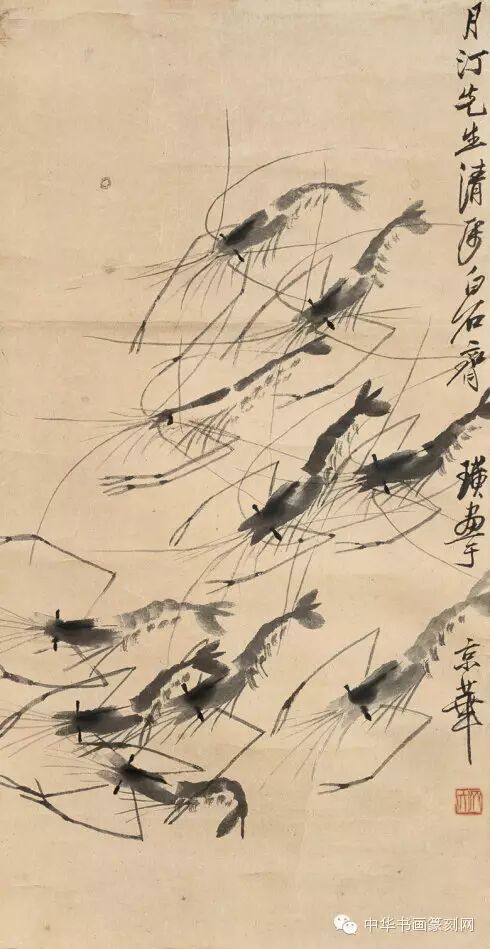 月汀先生清属白石齐璜画于京华
中华书画篆刻网